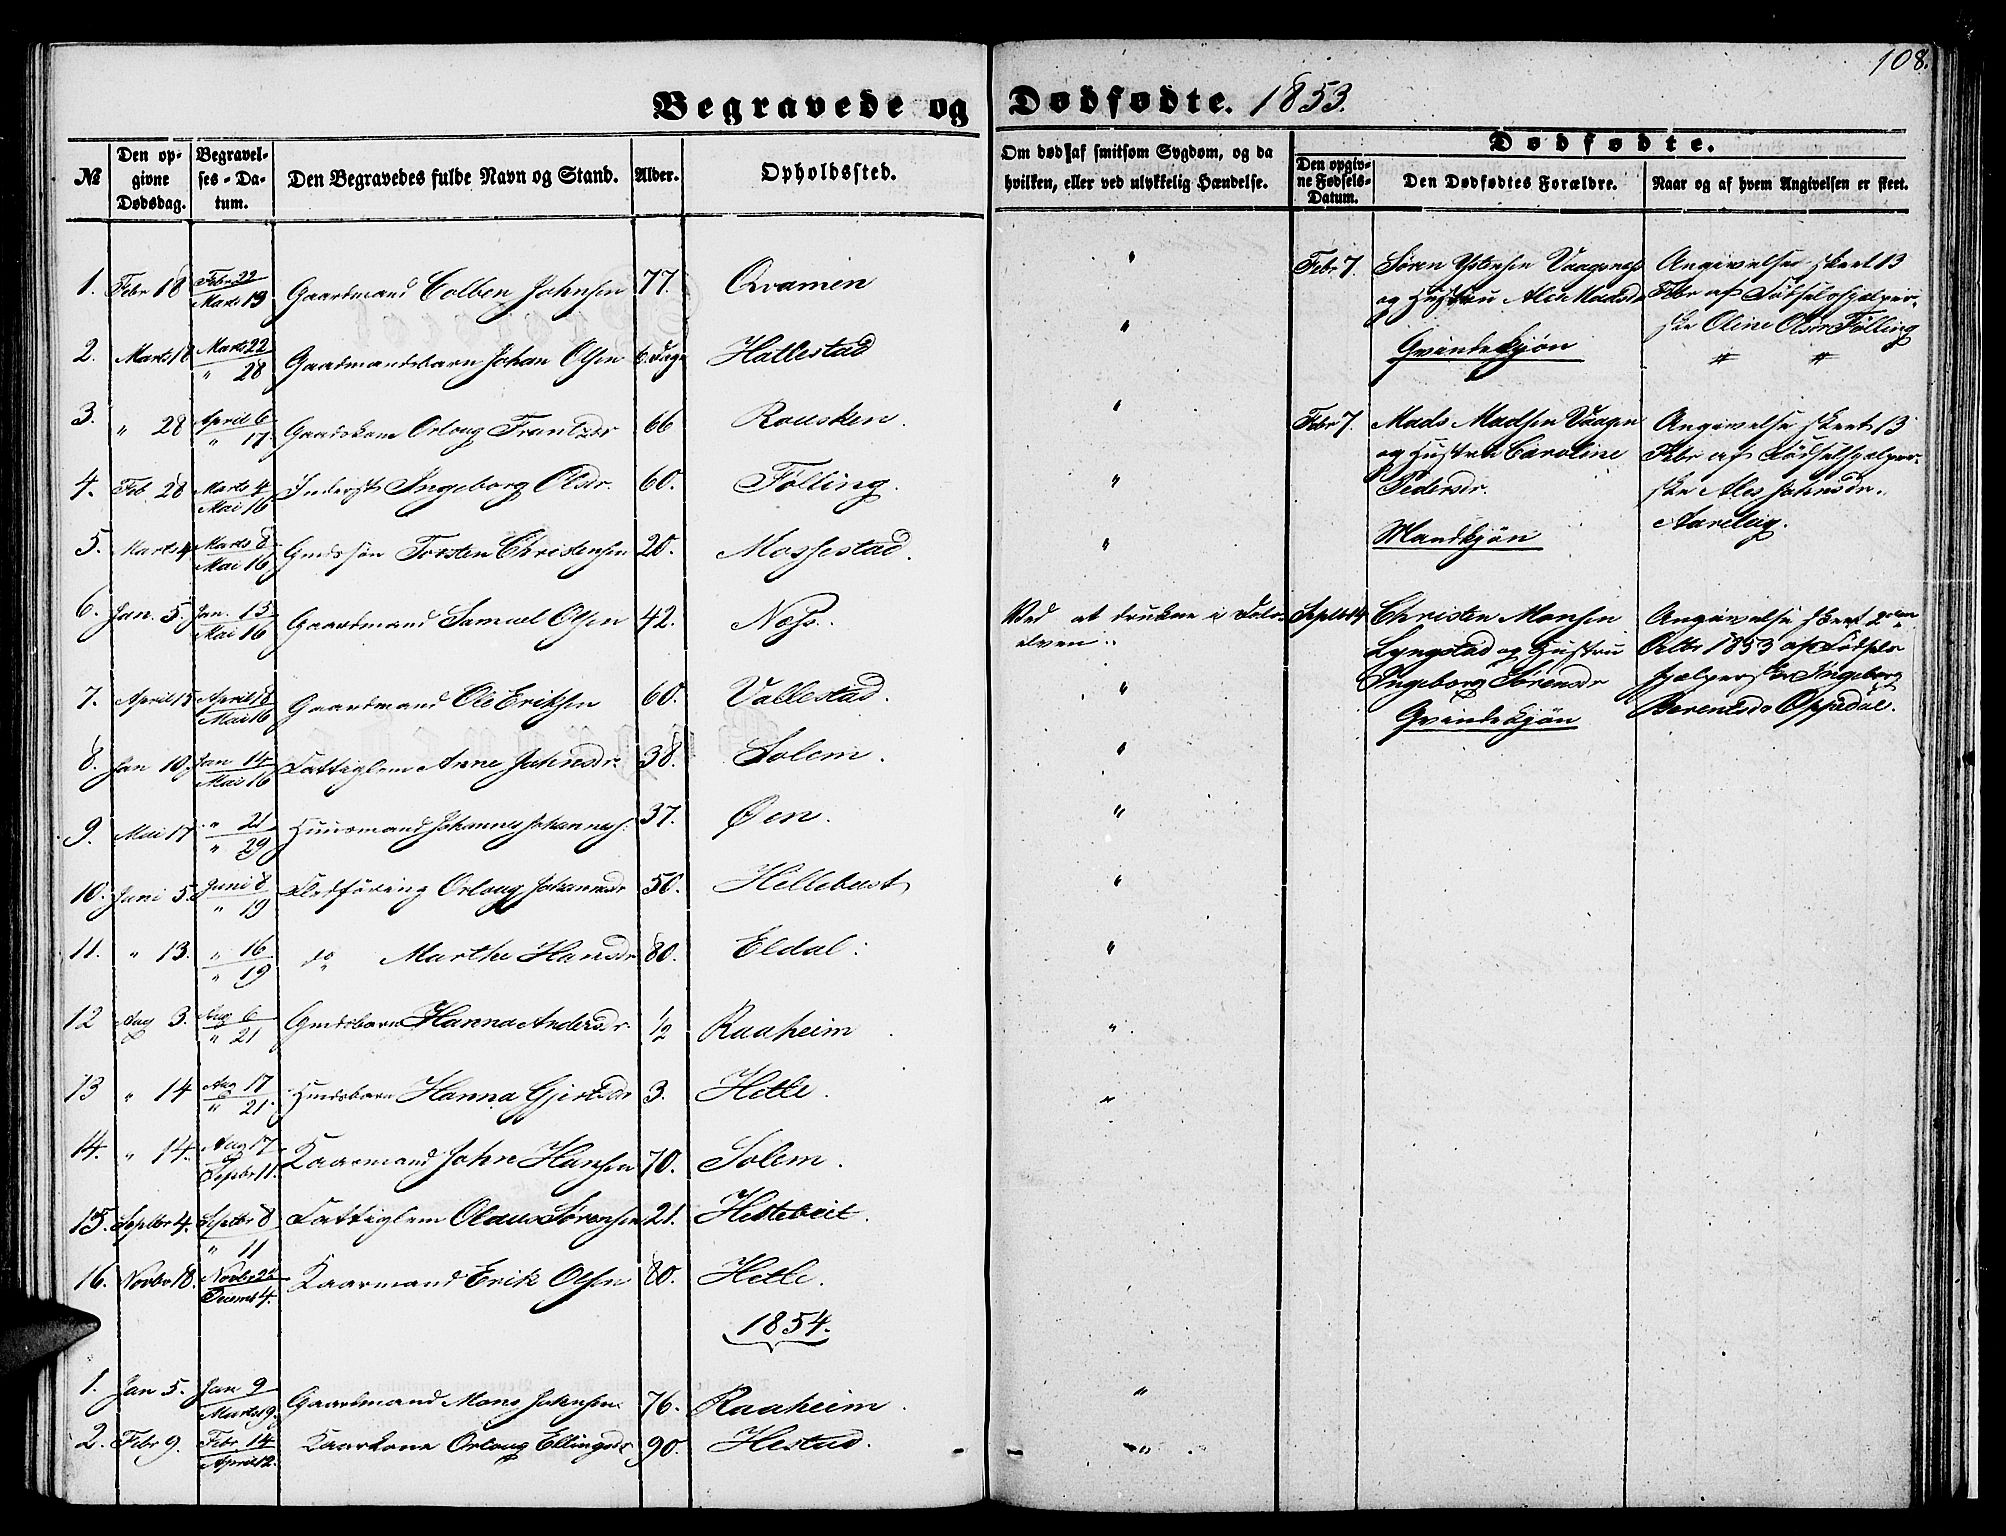 108.
Begravede og Dødfødte. 1853.
№ Den opgivne Dødsdag. Begravelses-Datum. Den Begravedes fulde Navn og Stand. Alder. Opholdssted.
Om død af smitsom Sygdom, og da hvilken, eller ved ulykkelig Hændelse.
Dødfødte.
Den opgivne Fødsels-Datum. Den Dødfødtes Forældre. Naar og af hvem Angivelsen er skeet.
1. Febr 18 Febr 22 / Marts 13 Gaardmand Colben Johnsen 77. Qvamen "
2. Marts 18 Marts 22 / " 28 Gaardmandsbarn Johan Olsen 6 Dage Hallestad "
3. " 28 April 6 / " 17 Gaardskone Orloug Frantsdr 66 Rousken "
4. Feb 28 Marts 4 / Mai 16 Inderst Ingeborg Olsdr. 60. Følling. "
5. Marts 4 Marts 8 / Mai 16 Gmdssøn Torsten Christensen 20. Mossestad. "
6. Jan. 5. Jan. 15 / Mai 16 Gaardmand Samuel Olsen 42. Næss. Ved at drukne i
elven.
7. April 15 April 18 / Mai 16 Gaardmand Ole Eriksen 60. Vallestad. "
8. Jan 10. Jan 14 / Mai 16 Fattiglem Anne Johnsdr. 38. Solem. "
9. Mai 17 " 21 / " 29 Huusmand Johannes Johannes. 37. Øen. "
10. Juni 5. Juni 8 / " 19 Fledføring Orloug Johannsdr 50. Hellebust "
11. " 13. " 16 / " 19 do Marthe Hansdr 80. Eldal. "
12 Aug 3. Aug 6 / " 21 Gmdsbarn Hanna Andersdr. 1/2 Raaheim "
13 " 14 Aug 17 / " 21. Hmdsbarn Hanna Gjertsdr 3. Hetle. "
14. " 14. Aug 17 / Septbr 11. Kaarmand John Hansen 70. Solem.
15. Septbr 4. Septbr 8 / " 11 Fattiglem Olaus Sørensen 21. Hestebeit.
16. Novbr 18. Novbr 24 / Decembr 4. Kaarmand Erik Olsen 80. Hetle.
1854.
1. Jan 5. Jan 9 / Marts 19. Gaardmand Mons Johnsen 76. Raaheim. "
2. Febr 9. Febr 14 / April 12. Kaarkone Orloug Ellingsdr 90. Hestad. "
Febr 7. Søren Ystensen Vaagenes Angivelse skeet 13
og Hustru Ales Madsdr Febr af Fødselshjælper-
ske Oline Olsdr Følling
Qvindekjøn
Febr 7. Mads Madsen Vaagen Angivelse skeet 13
og Hustru Caroline Febr af Fødselshjælper-
Pedersdr. ske Ales Johnsdr.
Mandkjøn Aareleig.
Septbr 14 Christen Monsen Angivelse skeet 2den
Lyngstad og Hustru Octbr 1853 af Fødsels-
Ingeborg Sørensdr hjælperske Ingeborg
Qvindekjøn Berentsdr Oppedal.